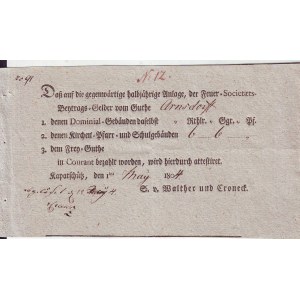 No 12.
Daß auf die gegenwärtige halbjährige Anlage, der Feuer-Societäts-
Beytrags-Gelder vom Guthe Arnsdorf
1. denen Dominial-Gebäuden daselbst " Rthlr. " Ggr. " Pf.
2. denen Kirchen-Pfarr- und Schulgebäuden 6 " 6 "
3. dem Frey-Guthe
in Courant bezahlt worden, wird hierdurch attestiret.
Kapatschütz, den 1ten May 1804
S. v. Walther und Croneck.